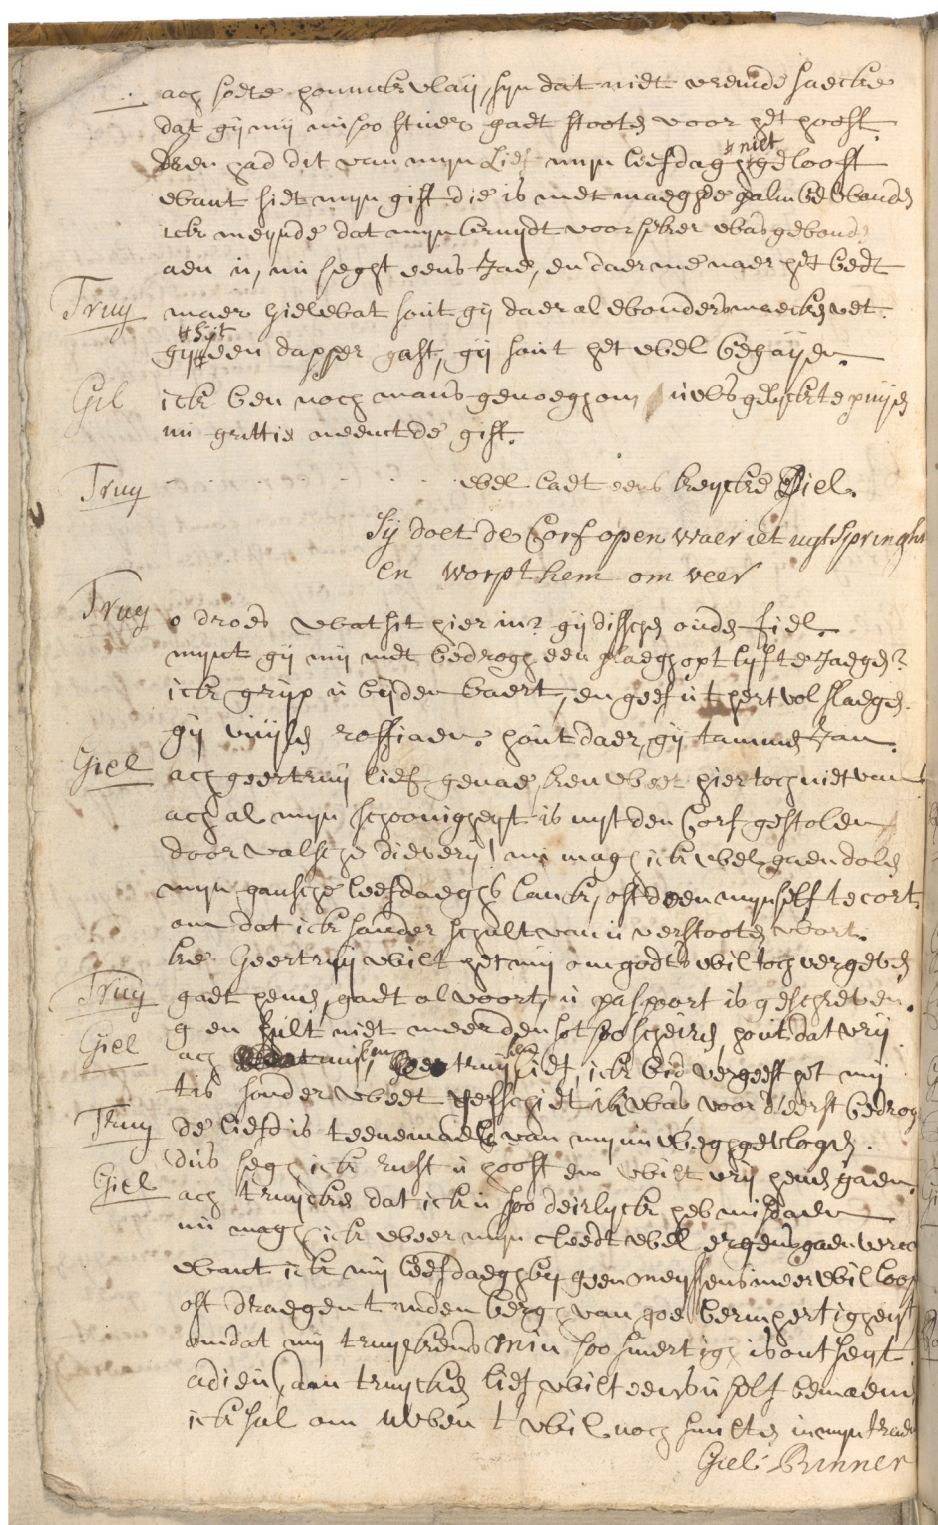 ach soete honinck vlaij, sijn dat niet vremde saecke
dat gij mij nu soo stuer gaet stooten voor het hooft
wen had dit van mijn Lief mijn leefdagh niet gelooft
want siet mijn gift die is met maeghde palm bewonde
ick meijnde dat mijn bruijdt voorseker was gebonde
aen u, nu seght eens Jae, en daer me naer het bedt
Truy maer Giele wat sout gij daer al wonders maecken vet.
gij syt een dapper gast, gij sout het wel behaijen.
Gil ick ben noch mans genoegh om uws gelyck te puijen
nu grittie neemt de gift.
Truy . . . . . . . wel laet eens kycke Giel.
Sij doet de Corf open waer iet uyt springht
en worpt hem om veer
Truy o droes wat sit hier in? gij dissen ouden fiel.
mijnt gij mij met bedrogh een slaegh opt lyf te Jaegen?
ick gryp u bij den baert, en geef u t hert vol slaegen.
gij vuijlen roffiaen. hout daer, gij tammen Jan.
Giel ach geertruij lief genae, ken weet hier toch niet van
ach al mijn schoonigheyt is uyt den Corf gestolen
door valsche dieverij, nu magh ick wel gaen dolen
mijn gansche leefdaeghs lanck, oft doen mijnself te cort.
om dat ick sonder schult van u verstooten wort.
ke Geertruij wilt het mij om godts wil toch vergeven
Truy gaet henen, gaet al voort, u paspoort is geschreven.
g en sult niet meer den sot soo scheiren, hout dat vrij
Giel ach truy siet, ick bid vergeeft het mij
tis sonder weet geschiet ik was voor d'eerst bedrog
Truy de liefd is teenemael van mij nu wegh gevlogen.
dus segh ick rust u hooft en wilt vrij henen gaen.
Giel ach truycken dat ick u soo deirlyck heb misdaen
nu magh ick weer mijn cleedt wel ergens gaen
want ick mij leefdaegh by geen meyssens meer wil loop
oft draegen t inden bergh van goe bermhertigheyt
omdat mij truykens min soo smertigh is ontseyt.
adieu dan truycken lief, wilt eens u self bemaenen
ick sal om uwen t wil noch smilten in mijn traen
Giel: Binner